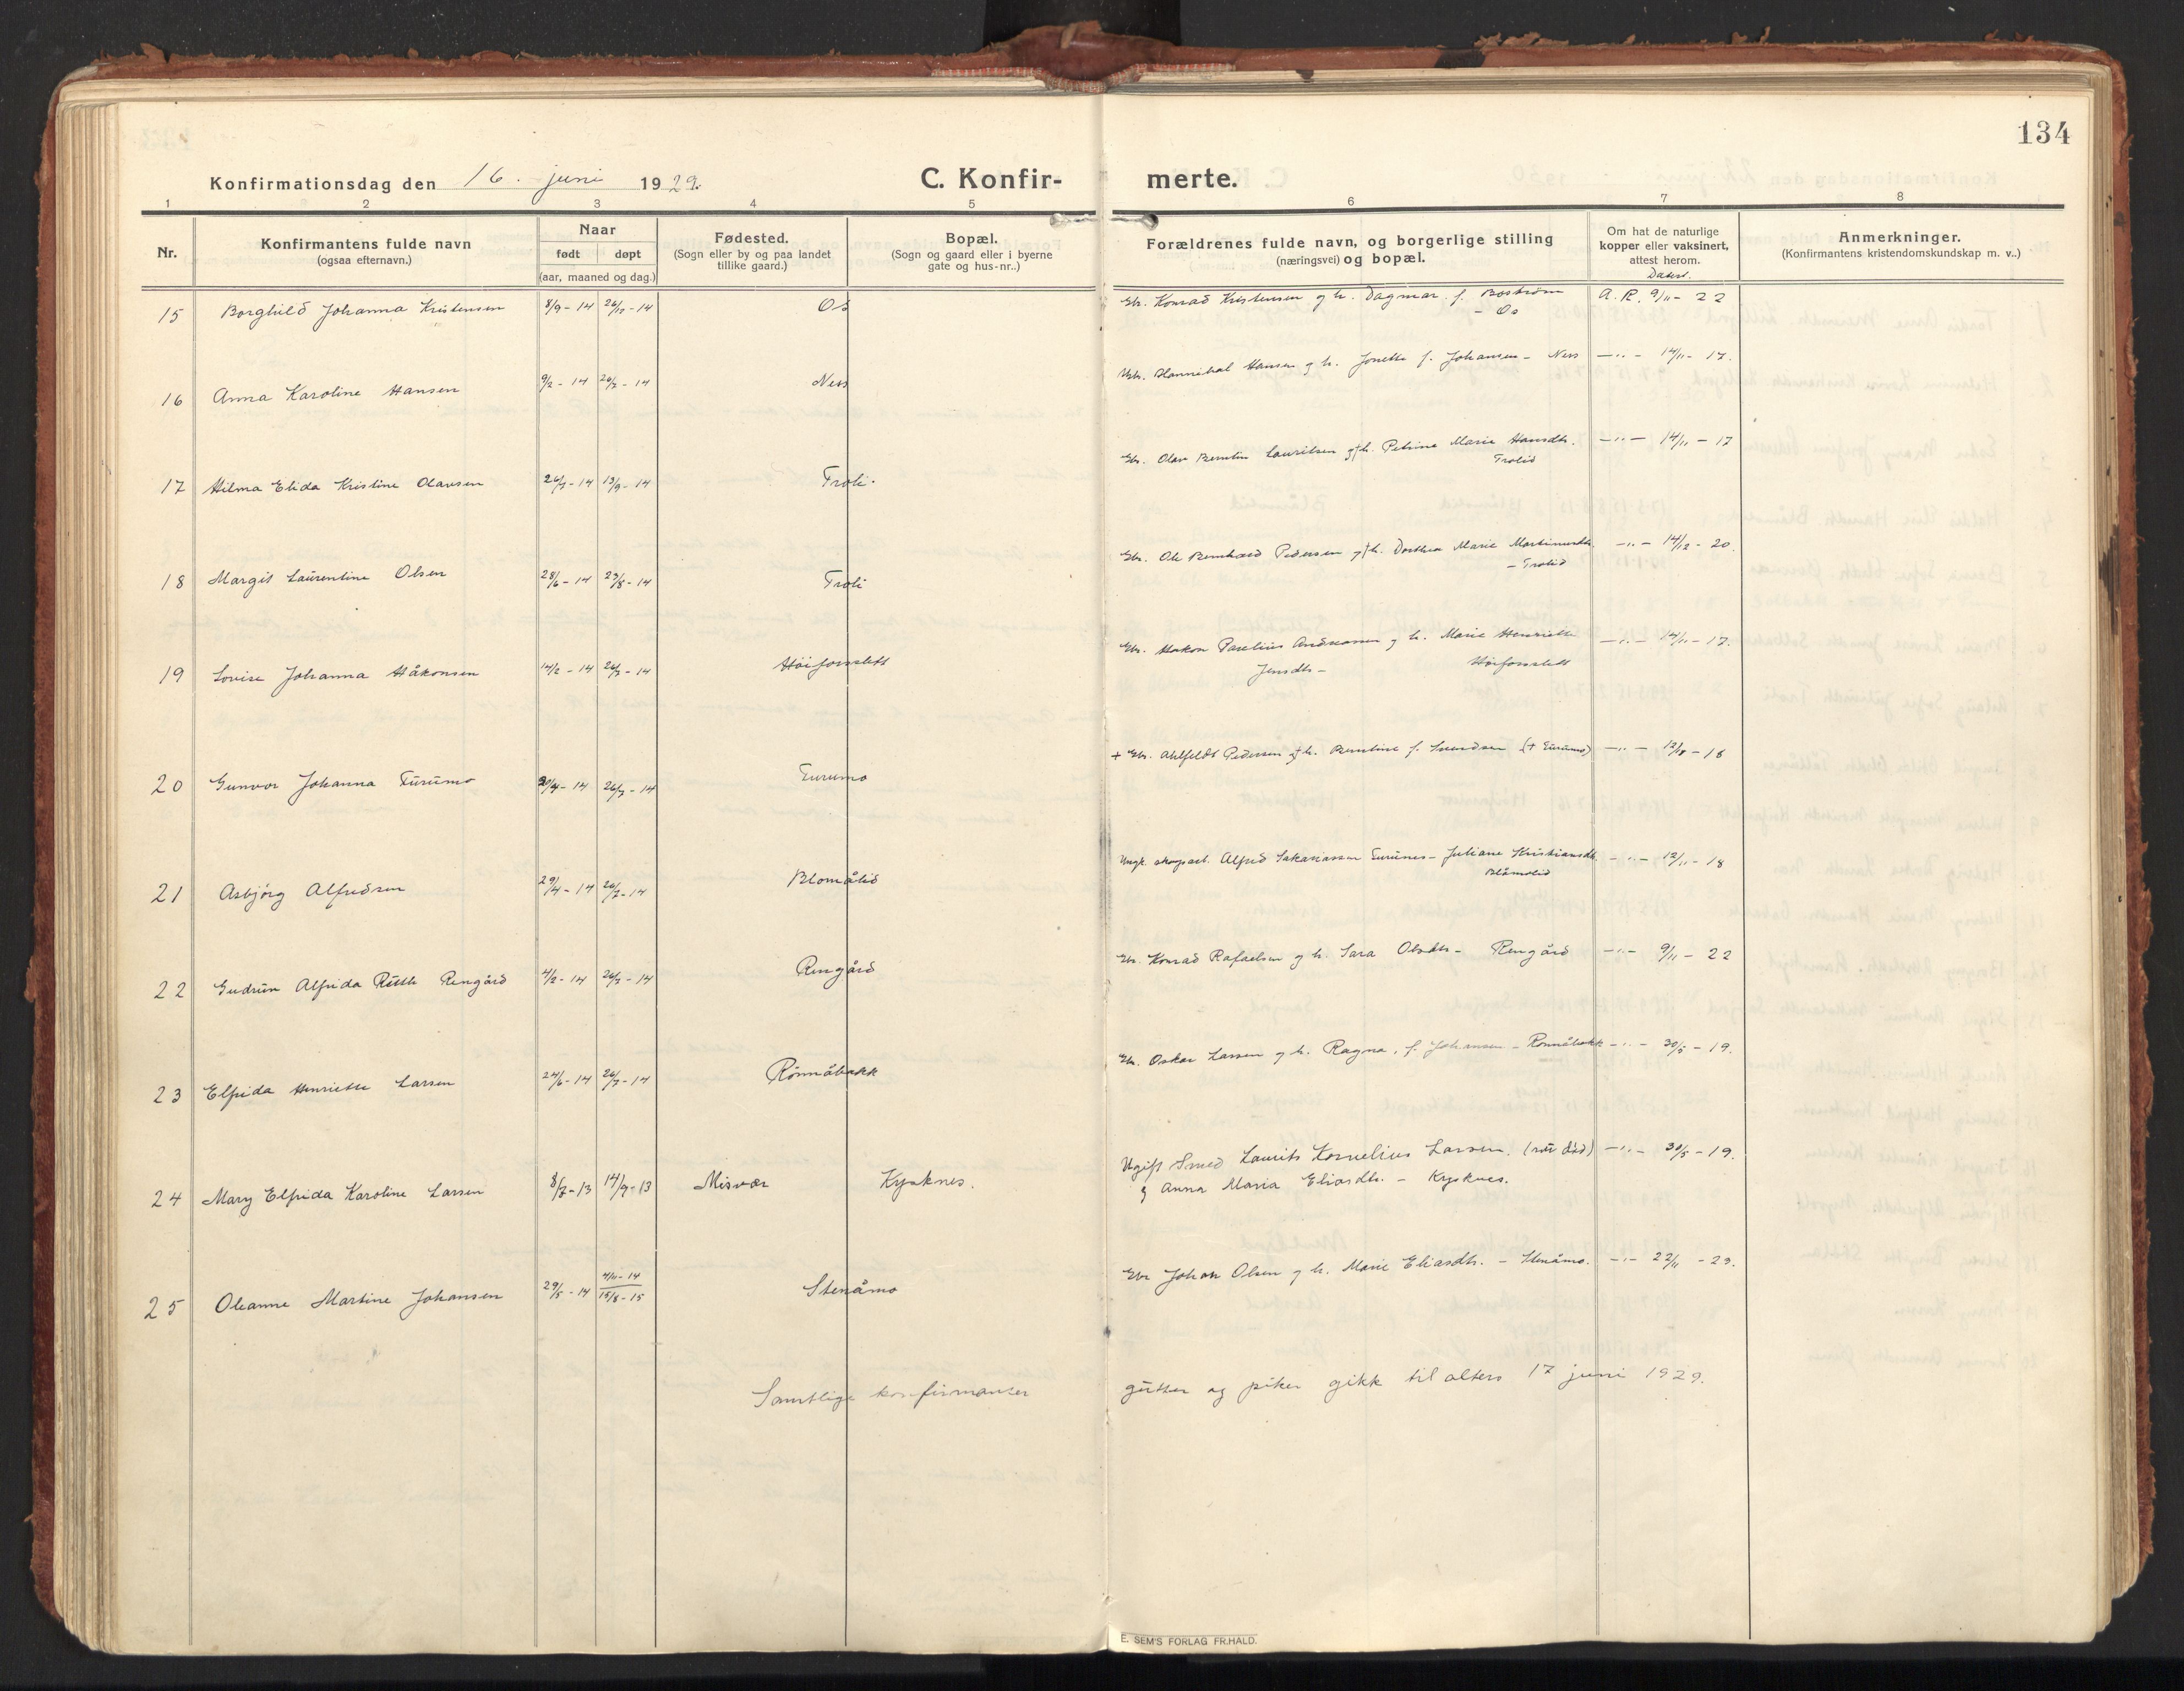 134
Konfirmationsdag den 16. juni 1929.
C. Konfir- merte.
1 2 3 4 5 6 7 8
Nr.
Konfirmantens fulde navn
(ogsaa efternavn.)
Naar
født døpt
(aar, maaned og dag.)
Fødested.
(Sogn eller by og paa landet
tillike gaard.)
Bopæl.
(Sogn og gaard eller i byerne
gate og hus-nr..)
Forældrenes fulde navn, og borgerlige stilling
(næringsvei) og bopæl.
Om hat de naturlige
kopper eller vaksinert,
attest herom.
Datert.
Anmerkninger.
(Konfirmantens kristendomskundskap m. v..)
15 Borghild Johanna Kristensen 8/9-14 26/10-14 Os Gbr. Konrad Kristensen og h. Dagmar f. Boström A. R. 9/11-22
- Os
16 Anna Karoline Hansen 9/2-14 26/7-14 Nes Hannibal Hansen og h. Jonette f. Johansen - Nes -"- 14/11-17.
17 Hilma Elida Kristine Olavsen 26/7-14 13/9-14 Troli. Gbr. Olav Bentin Lauritsen og †h. Petrine Marie Hansdtr. -"- 14/11-17
Trolid
18 Margit Laurentine Olsen 28/6-14 23/8-14 Troli Gbr. Ole Bernhard Pedersen og †h. Dorthea Marie Martinusdtr. -"- 14/12-20.
- Trolid
19 Lovise Johanna Håkonsen 14/2-14 26/7-14 Høiforsslett Gbr. Hakon Paselius Andreassen og h. Marie Henriette -"- 14/11-17.
Jensdtr- Høiforsslett
20 Gunvor Johanna Furumo 30/4-14 26/7-14 Furumo + Gbr. Ahlfeldt Pedersen og †h. Bentine f. Svendsen (+ Furumo) -"- 12/8-18
21 Asbjørg Alfredsen 29/4-14 26/7-14 Blomålid Ungk. skogsarb. Alfred Sakariassen Furunes - Juliane Kristiansdtr. -"- 12/11-18
Blåmolid
22 Gudrun Alfrida Ruth Rengård 4/2-14 26/7-14 Rengård Gbr. Konrad Rafaelsen og h. Sara Olsdtr- Rengård -"- 9/11-22
23 Elfrida Henriette Larsen 24/6-14 26/7-14 Rønnåbakk Gbr. Oskar Larsen og h. Ragna, f. Johansen - Rønnåbakk -"- 30/5-19.
24 Mary Elfrida Karoline Larsen 8/7-13 14/9-13 Misvær Kysknes. Ugift Smed Laurits Kornelius Larsen. (nu død) -"- 30/5-19.
& Anna Maria Eliasdtr. - Kysknes.
25 Oleanne Martine Johansen 29/5-14 4/11-14 Stenåmo Gbr Johan Olsen og h. Marie Eliasdtr. - Stenåmo. -"- 22/11-29.
15/8-15
Samtlige konfirmanter gutter og piker gikk til alters 17 juni 1929.
E. SEM'S FORLAG FR.HALD.